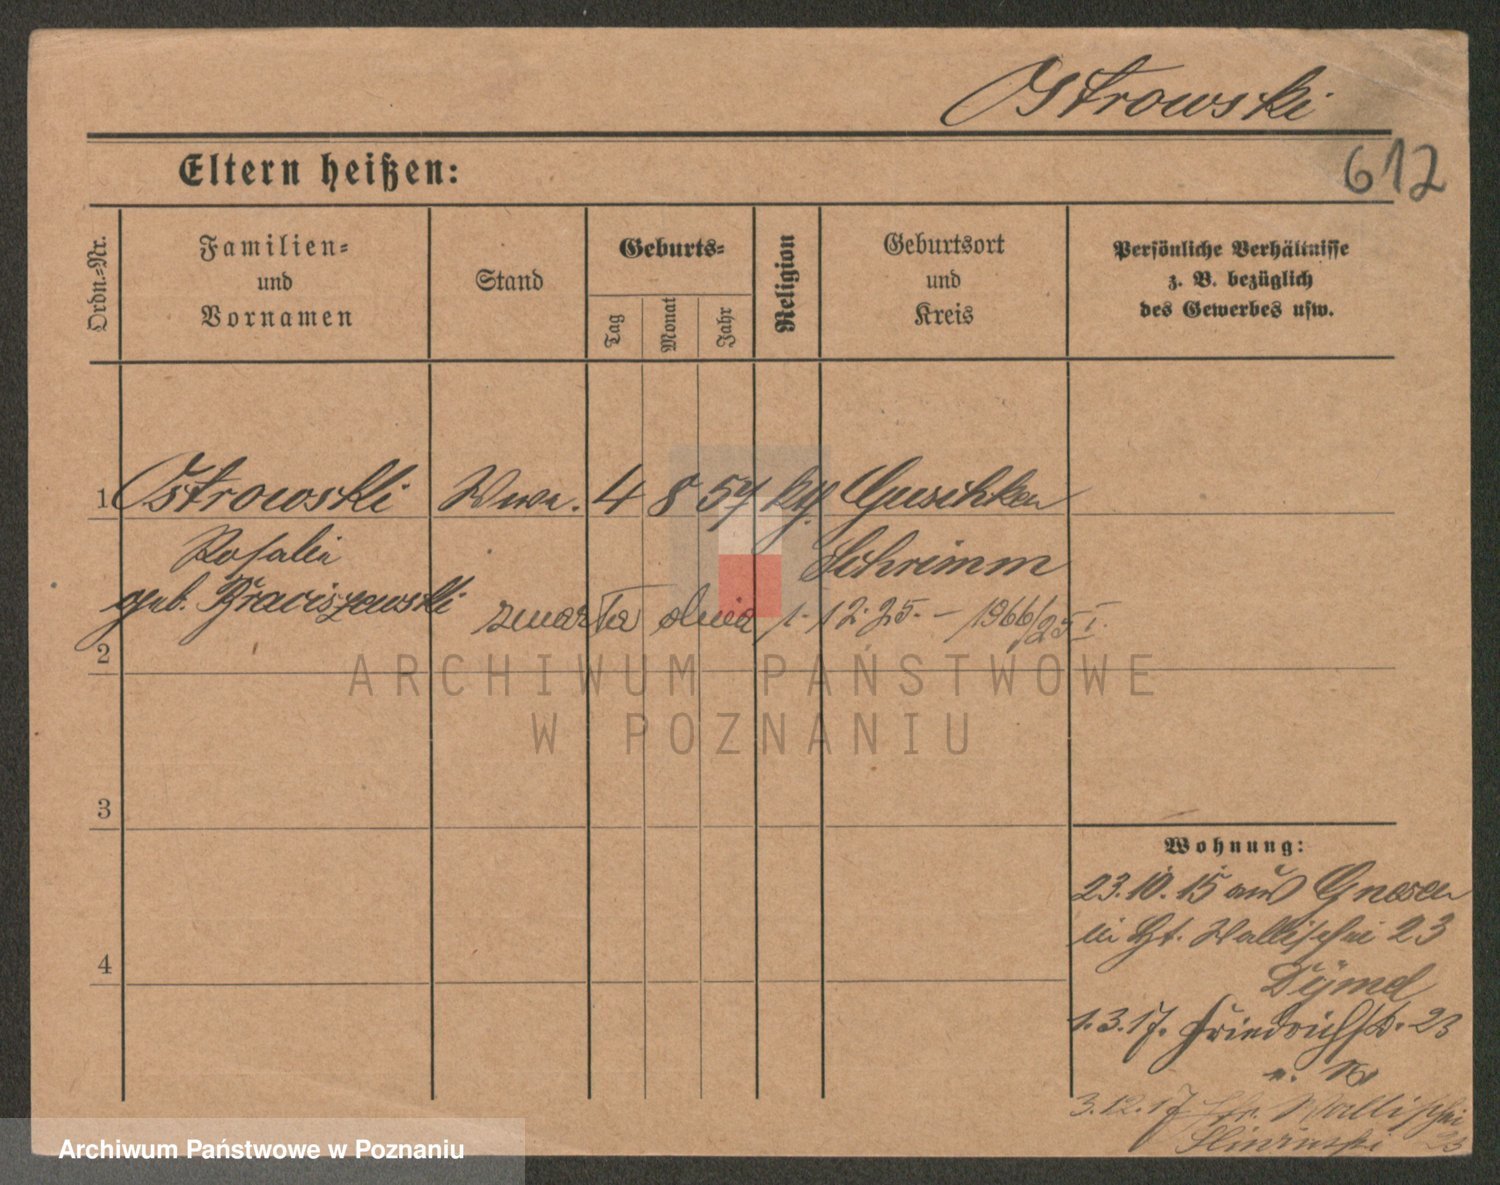 Ostrowski
612
Eltern heißen:
Ordn.-Nr.
Familien-
und
Vornamen
Stand
Geburts-
Tag
Monat
Jahr
Religion
Geburtsort
und
Kreis
Persönliche Verhältnisse
z. B. bezüglich
des Gewerbes usw.
1 Ostrowski Wwe. 4 8 57 kth.
Rosalie Schrimm
geb.
zmarła dnia 1.12.25. – 1966/25 I.
2
ARCHIWUM PAŃSTWOWE
W POZNANIU
3
4
Wohnung:
23.10.15 aus Gnesen
in Wallischei 23
1.3.17. Friedrichstr. 23
3.12.17 Wallischei
23
Archiwum Państwowe w Poznaniu